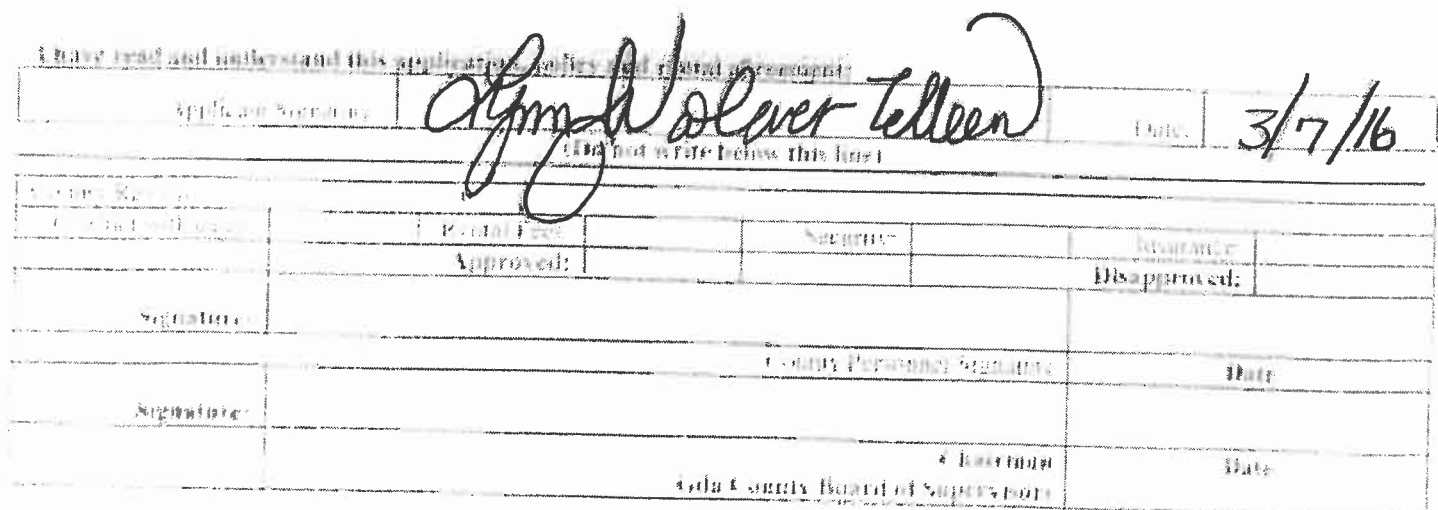 I have read and understand this application, policy and rental agreement:
Applicant Signature Lynn Wolever Telleen Date: 3/7/16
(Do not write below this line)
Rental Fees Security Insurance
Approved: Disapproved:
Signature:
County Personnel Signature Date
Signature:
Chairman Date
Gila County Board of Supervisors